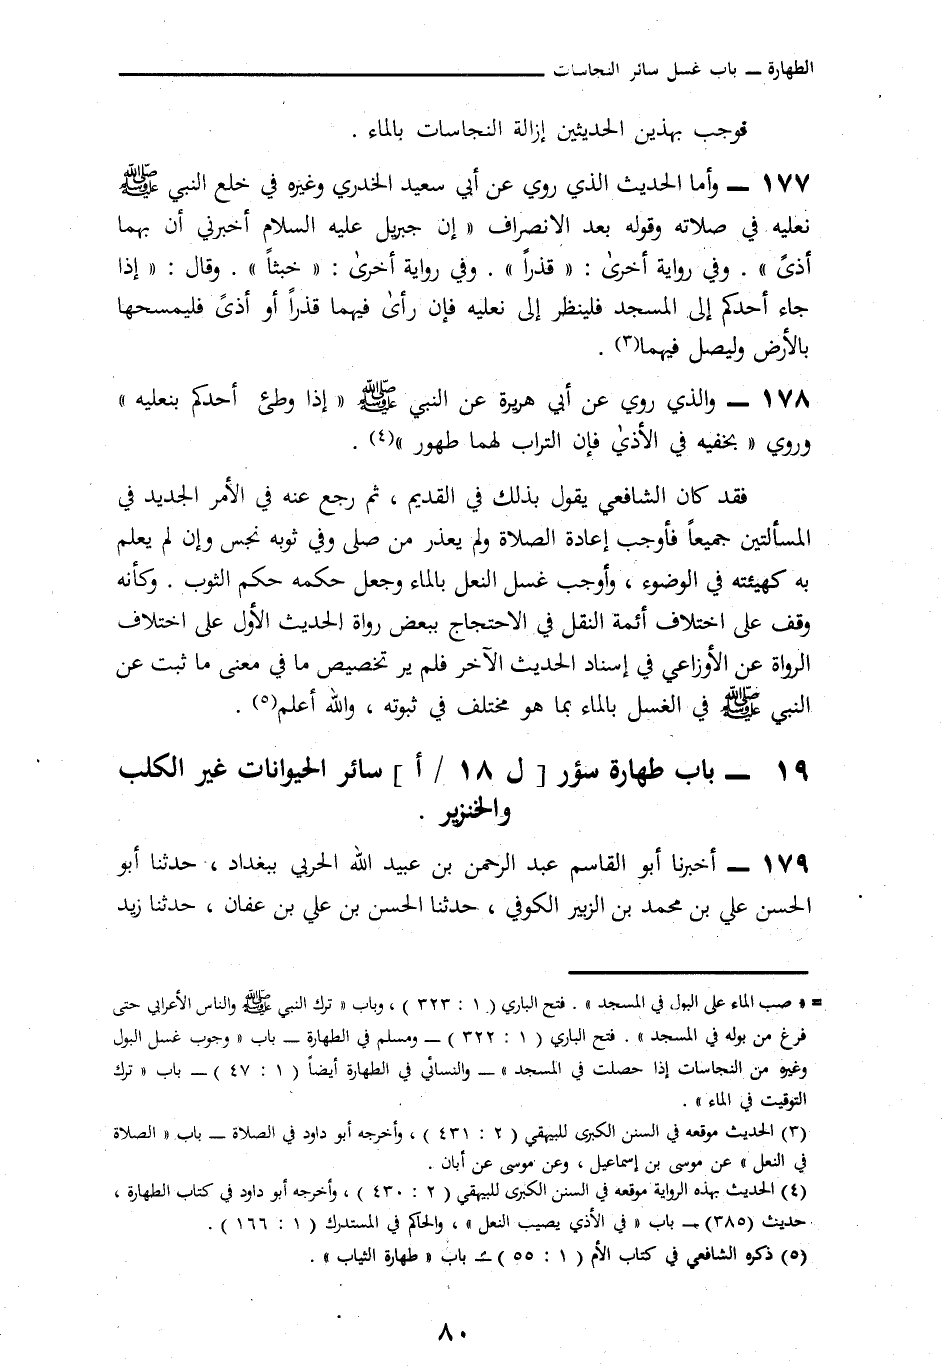 الطهارة ـــ باب غسل سائر النجاسات
فوجب بهذين الحديثين إزالة النجاسات بالماء .
١٧٧ ـــ وأما الحديث الذي روي عن أبي سعيد الخدري وغيره في خلع النبي ﷺ
نعليه في صلاته وقوله بعد الانصراف « إن جبريل عليه السلام أخبرني أن بهما
أذىً » . وفي رواية أخرىٰ : « قذراً » . وفي رواية أخرىٰ : « خبثاً » . وقال : « إذا
جاء أحدكم إلى المسجد فلينظر إلى نعليه فإن رأىٰ فيهما قذراً أو أذىً فليمسحها
بالأرض وليصل فيهما(٣) .
١٧٨ ـــ والذي روي عن أبي هريرة عن النبي ﷺ « إذا وطئ أحدكم بنعليه »
وروي « بخفيه في الأذىٰ فإن التراب لهما طهور »(٤) .
فقد كان الشافعي يقول بذلك في القديم ، ثم رجع عنه في الأمر الجديد في
المسألتين جميعاً فأوجب إعادة الصلاة ولم يعذر من صلى وفي ثوبه نجس وإن لم يعلم
به كهيئته في الوضوء ، وأوجب غسل النعل بالماء وجعل حكمه حكم الثوب . وكأنه
وقف على اختلاف أئمة النقل في الاحتجاج ببعض رواة الحديث الأول على اختلاف
الرواة عن الأوزاعي في إسناد الحديث الآخر فلم ير تخصيص ما في معنى ما ثبت عن
النبي ﷺ في الغسل بالماء بما هو مختلف في ثبوته ، والله أعلم(٥) .
١٩ ـــ باب طهارة سؤر [ ل ١٨ / أ ] سائر الحيوانات غير الكلب
والخنزير .
١٧٩ ـــ أخبرنا أبو القاسم عبد الرحمن بن عبيد الله الحربي ببغداد ، حدثنا أبو
الحسن علي بن محمد بن الزبير الكوفي ، حدثنا الحسن بن علي بن عفان ، حدثنا زيد
= « صب الماء على البول في المسجد » . فتح الباري ( ١ : ٣٢٣ ) ، وباب « ترك النبي ﷺ والناس الأعرابي حتى
فرغ من بوله في المسجد » . فتح الباري ( ١ : ٣٢٢ ) ـــ ومسلم في الطهارة ـــ باب « وجوب غسل البول
وغيره من النجاسات إذا حصلت في المسجد » ـــ والنسائي في الطهارة أيضاً ( ١ : ٤٧ ) ـــ باب « ترك
التوقيت في الماء » .
(٣) الحديث موقعه في السنن الكبرى للبيهقي ( ٢ : ٤٣١ ) ، وأخرجه أبو داود في الصلاة ـــ باب « الصلاة
في النعل » عن موسى بن إسماعيل ، وعن موسى عن أبان .
(٤) الحديث بهذه الرواية موقعه في السنن الكبرى للبيهقي ( ٢ : ٤٣٠ ) ، وأخرجه أبو داود في كتاب الطهارة ،
حديث (٣٨٥) ـــ باب « في الأذي يصيب النعل » ، والحاكم في المستدرك ( ١ : ١٦٦ ) .
(٥) ذكره الشافعي في كتاب الأم ( ١ : ٥٥ ) ـــ باب « طهارة الثياب » .
٨٠